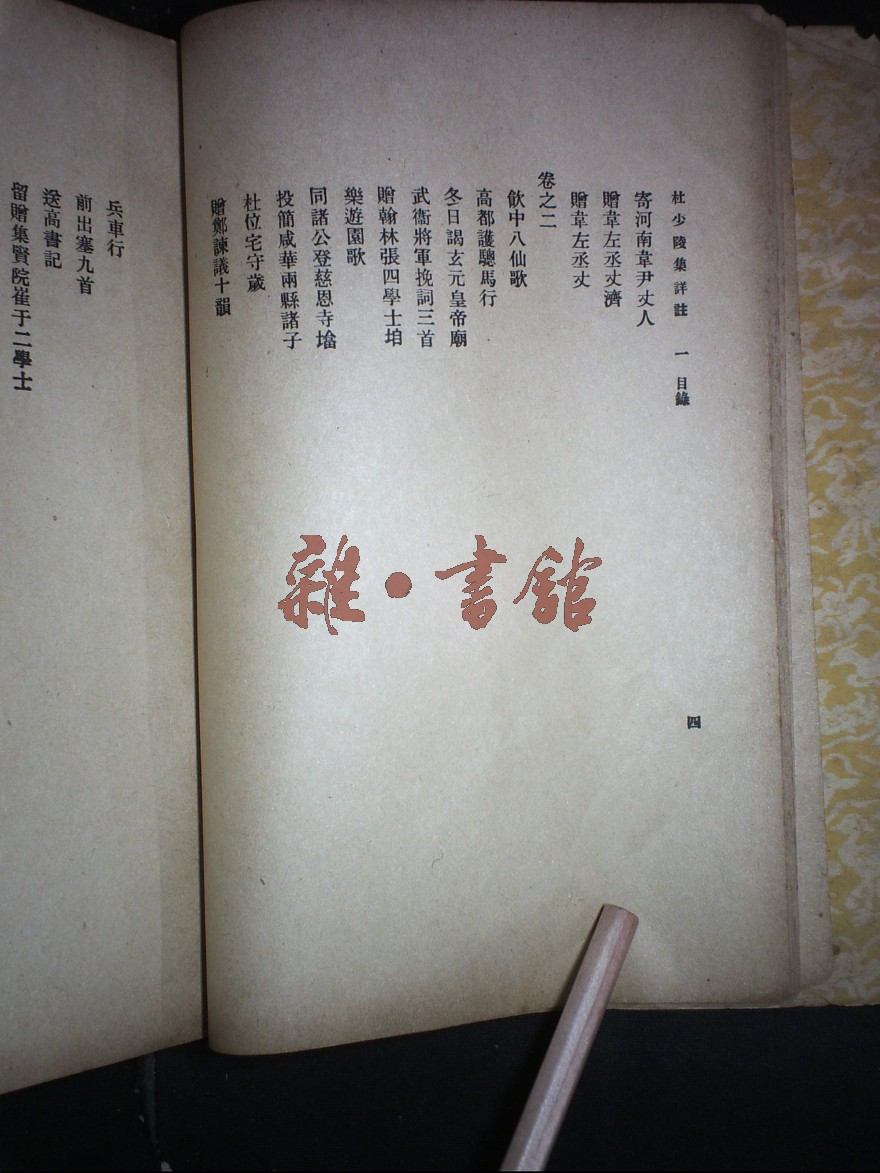 杜少陵集詳註 一 目錄
四
寄河南韋尹丈人
贈韋左丞丈濟
贈韋左丞丈
卷之二
飲中八仙歌
高都護驄馬行
冬日謁玄元皇帝廟
武衞將軍挽詞三首
贈翰林張四學士垍
樂遊園歌
同諸公登慈恩寺墖
投簡咸華兩縣諸子
杜位宅守歲
贈鄭諫議十韻
兵車行
前出塞九首
送高書記
留贈集賢院崔于二學士
雜·書館